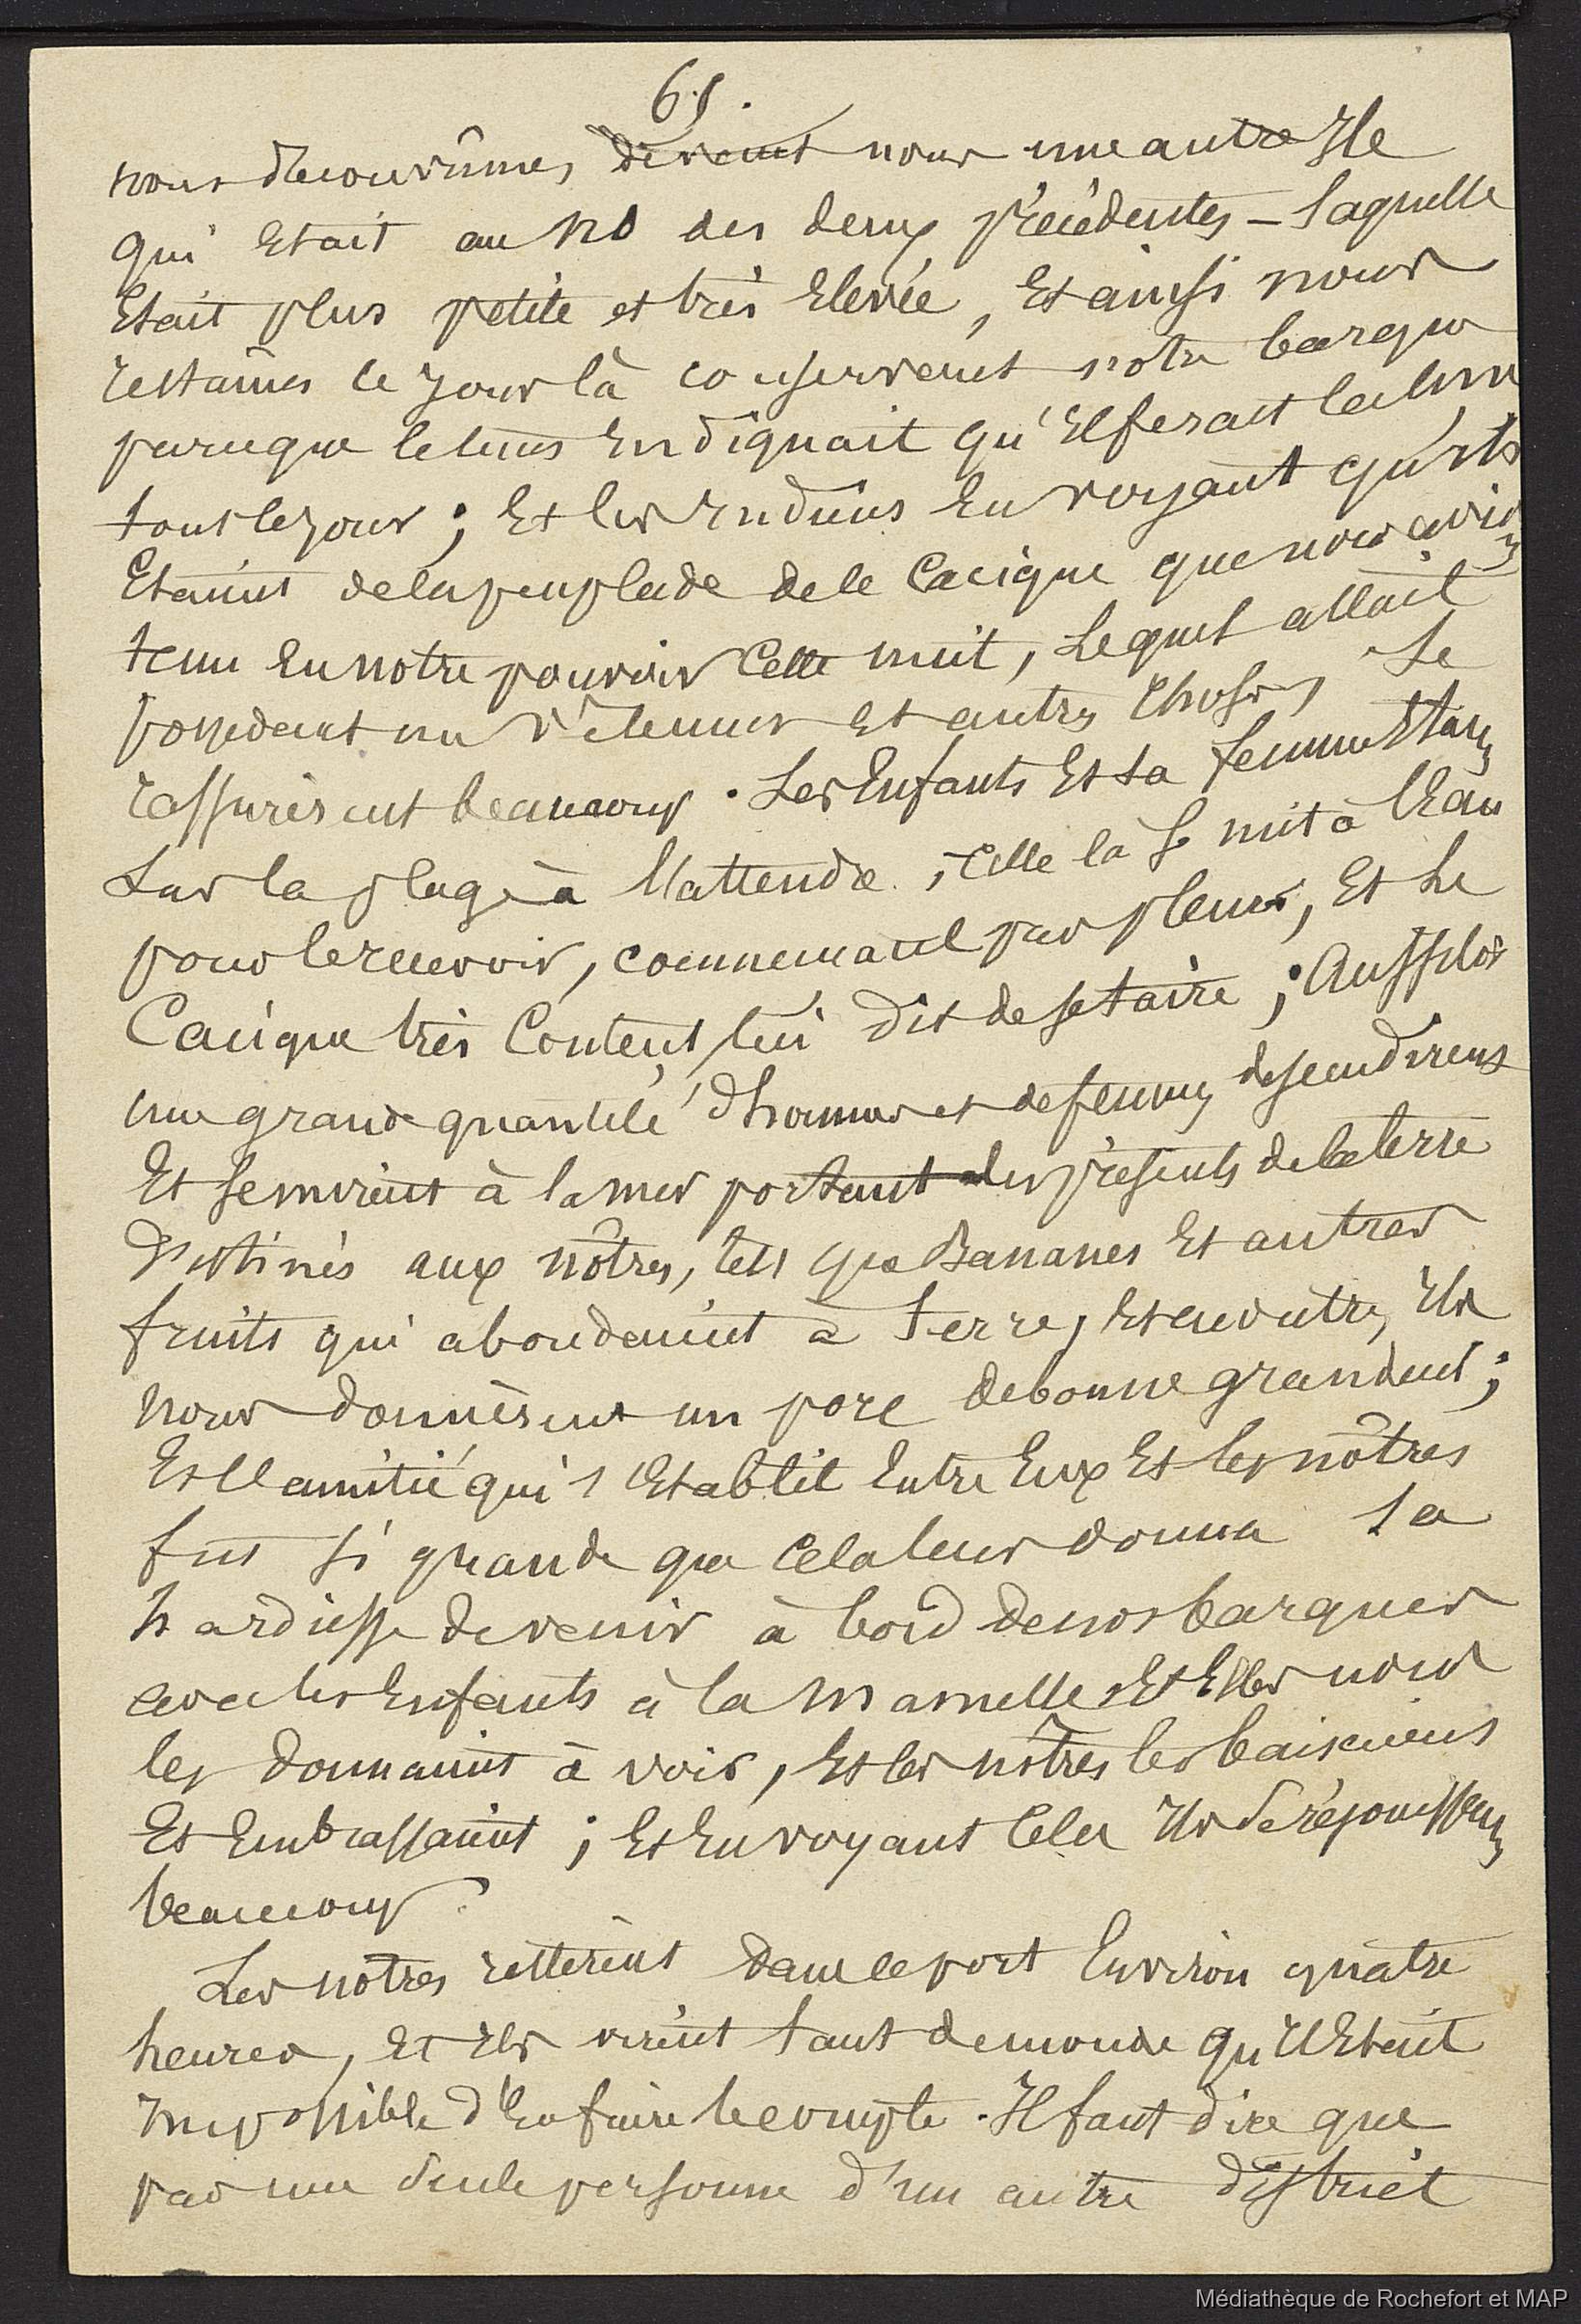 61.
nous decouvrîmes devant nous une autre Ile
qui Etait au NO des deux précédentes – laquelle
Etait plus petite et très Elevée, Et ainsi nous
restâmes ce jour là conservant notre barque
parceque le tems Indiquait qu'Il ferait calme
tout le jour ; Et les Indiens En voyant qu'ils
Etaient de la peuplade de le Cacique que nous avions
tenu En notre pouvoir Cette nuit, Lequel allait
possedant un vêtement Et autres choses, Se
rassurèrent beaucoup. Les Enfants Et sa femme Etant
Sur la plage à l'attendre, celle là se mit à l'Eau
pour le recevoir, commençant par pleurer, Et le
Cacique très Content, lui dit de se taire ; Aussitôt
une grande quantité d'hommes et de femmes descendirent
Et se mirent à la mer portant des présents de la terre
destinés aux nôtres, tels que Bananes Et autres
fruits qui abondaient à terre, Et en outre, Ils
nous donnèrent un porc de bonne grandeur ;
Et l'amitié qui s'Etablit Entre Eux Et les nôtres
fut si grande que Cela leur donna la
hardiesse de venir à bord de nos barques
avec les Enfants à la Mamelle Et Elles nous
les donnaient à voir, Et les nôtres les baisaient
Et Embrassaient ; Et En voyant Cela Ils Se réjouissaient
beaucoup.
Les nôtres restèrent dans le port Environ quatre
heures, Et Ils virent tant de monde qu'Il Etait
Impossible d'En faire le compte. Il faut dire que
pas une Seule personne d'un autre district
Médiathèque de Rochefort et MAP